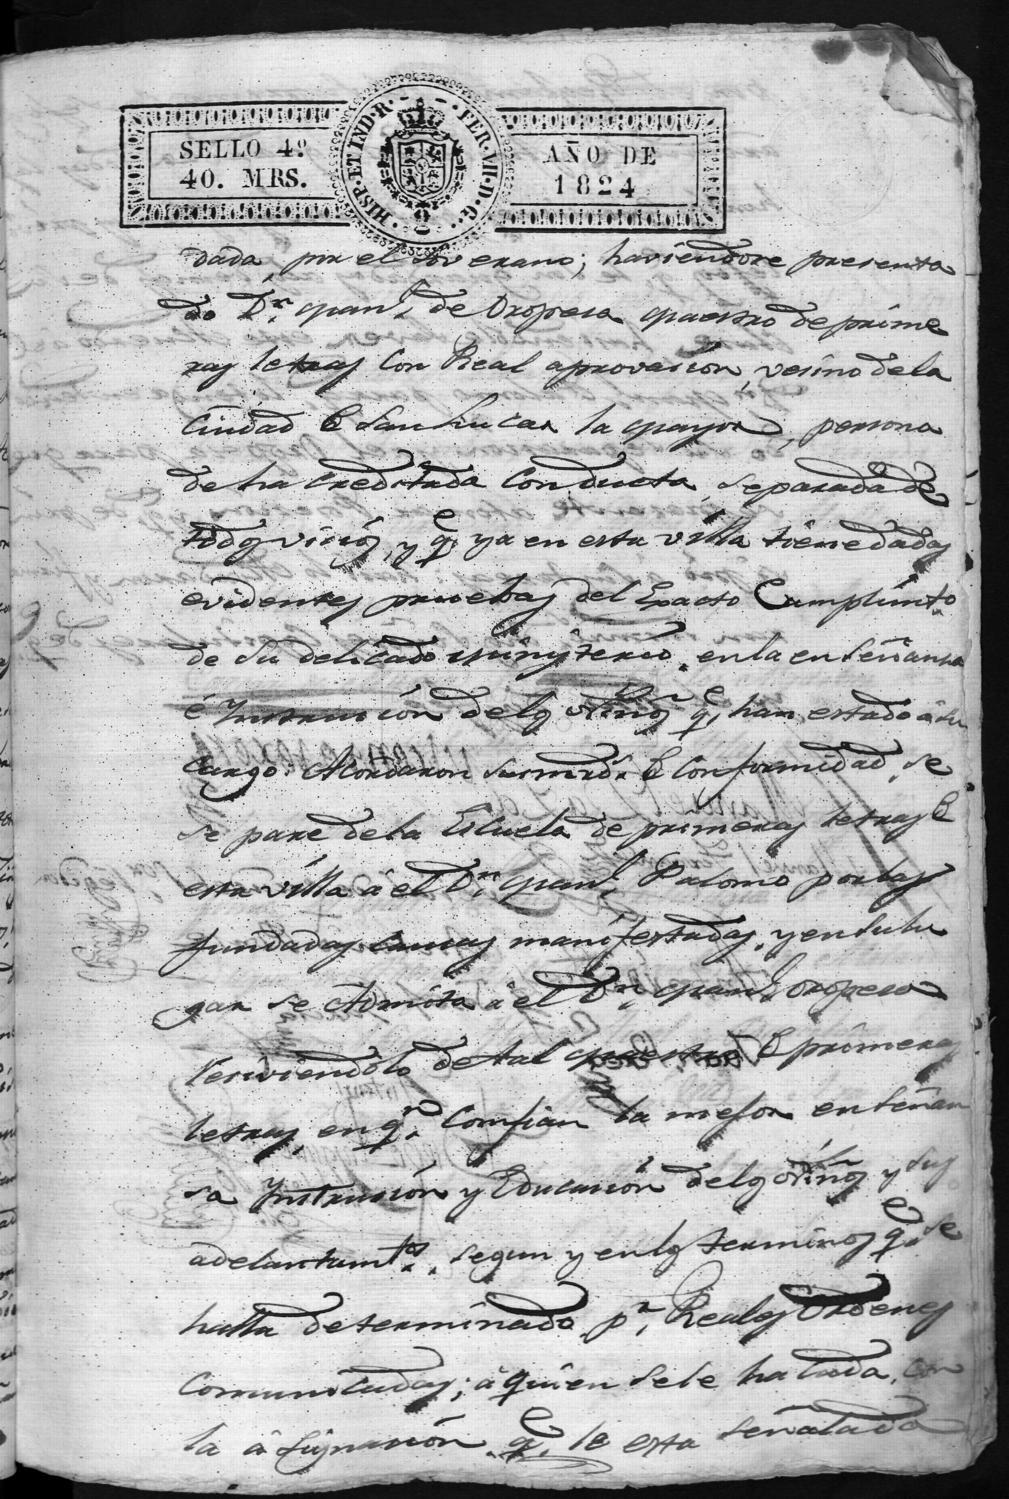 SELLO 4º
40. MRS.
HISP. ET IND. R. FER. VII. D. G.
AÑO DE
1824
dada, por el soverano; haviendose presenta
do Dn. Manl. de Oropesa Maestro de prime
ras letras con Real aprovasion, vesino dela
Ciudad de San Lucar la Mayor, persona
de ha creditada Conducta, separada de
todos vicios, y qe. ya en esta villa tiene dadas
evidentes pruebas del Exacto Cumplimto.
de su delicado ministerio en la enseñansa
é Instrusion delos Niños qe. han estado á su
cargo: Acordaron sus mrds. de conformidad, se
se pare dela Escuela de primeras letras de
esta villa á el Dn. Manl. Palomo por las
fundadas causas manifestadas, y en su lu
gar se Admita á el Dn. Manl. Oropesa
resiviendolo de tal Maestro de primeras
letras, en qn. Confian la mejor enseñan
sa Instrusion y Educasion delos Niños y sus
adelantamtos. segun y en los terminos qe. se
halla determinado pr. Reales Ordenes
Comunicadas; á quien sele ha cada con
la asignasion qe. le esta señalada